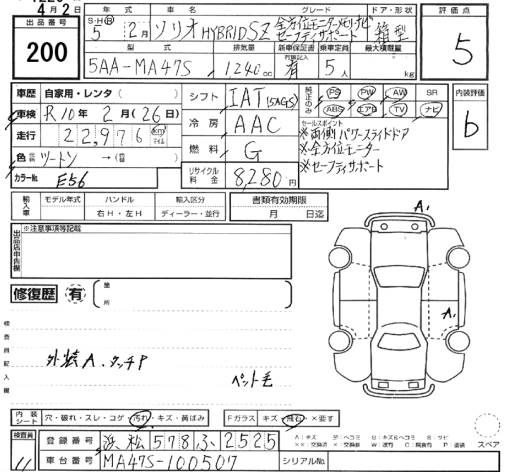 4月2日
出品番号
200
年式
S・H・R
5年 2月
車名
ソリオHYBRID SZ
グレード
全方位モニターメモリナビ
セーフティサポート
ドア・形状
箱型
評価点
5
型式
5AA-MA47S
排気量
1240cc
新車保証書
有 記入有
乗車定員
5人
最大積載量
kg
車歴 自家用・レンタ( )
車検 R10年2月(26日)
走行 22,976 km マイル
色 ツートン →( )
カラーNo. E56
シフト IAT(5AGS)
冷房 AAC
燃料 G
リサイクル料金 8,280円
純正のみ
PS PW AW SR
ABS エアB TV ナビ
セールスポイント
※両側パワースライドドア
※全方位モニター
※セーフティサポート
内装評価
b
輸入車
モデル年式 ハンドル 輸入区分
右H・左H ディーラー・並行
書類有効期限
月 日迄
出品店申告欄
※注意事項等記載
修復歴 有
箇所
検査員記入欄
外装A、タッチP
ペット毛
A、
A、
内装シート
穴・破れ・スレ・コゲ・汚れ・キズ・黄ばみ
Fガラス キズ・飛石・×要す
スペア
検査員
11
登録番号 浜松 578 ふ 2525
車台番号 MA47S-100507
シリアルNo.